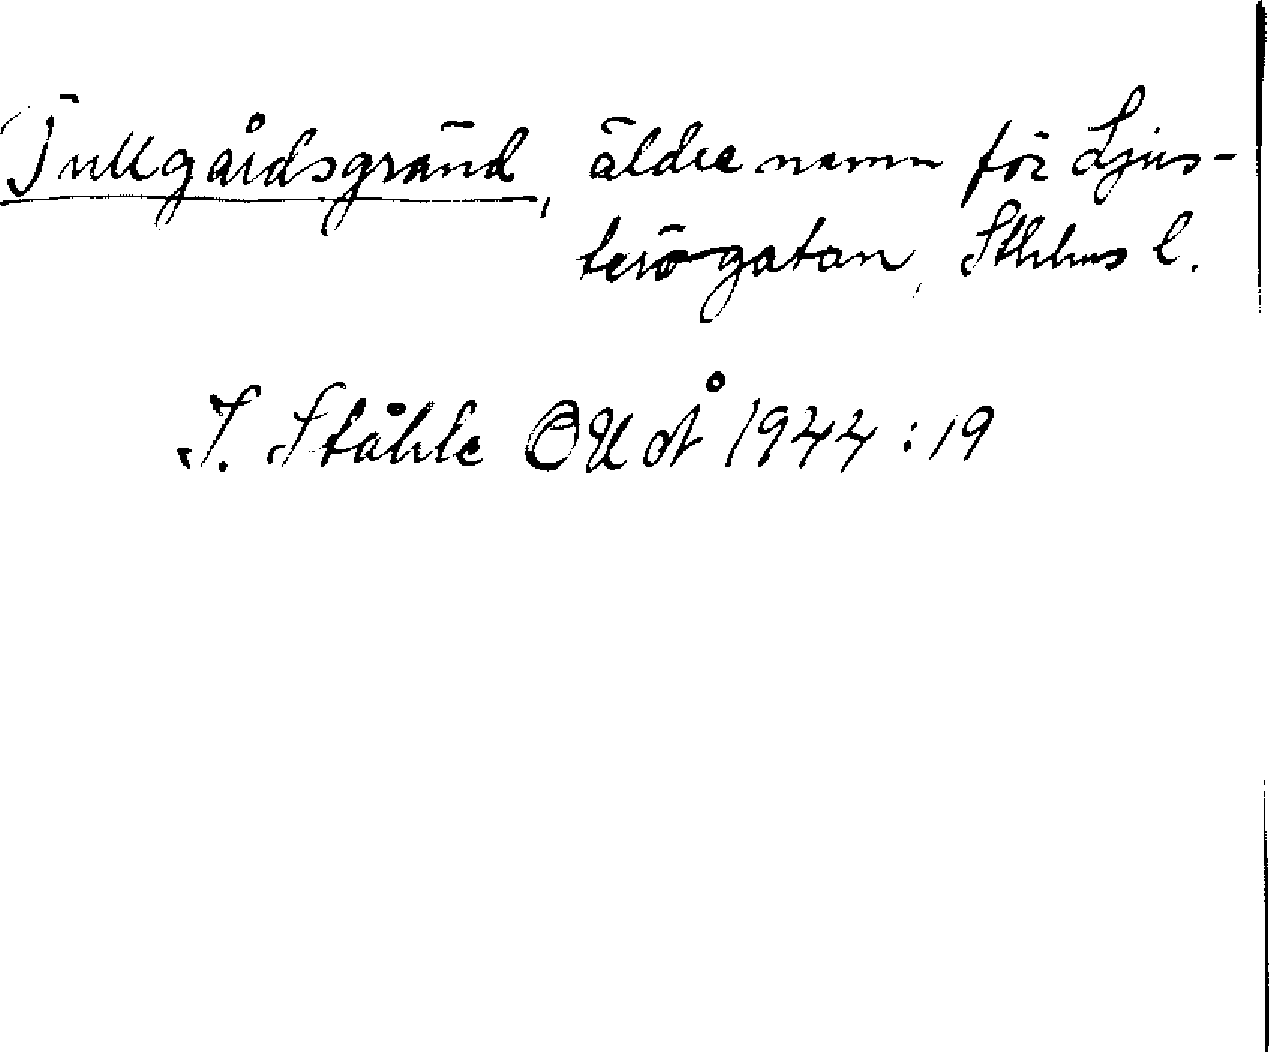 Tullgårdsgränd, äldre namn för Ljus-
terögatan, Sthlms l.
I. Ståhle OUÅ 1944:19